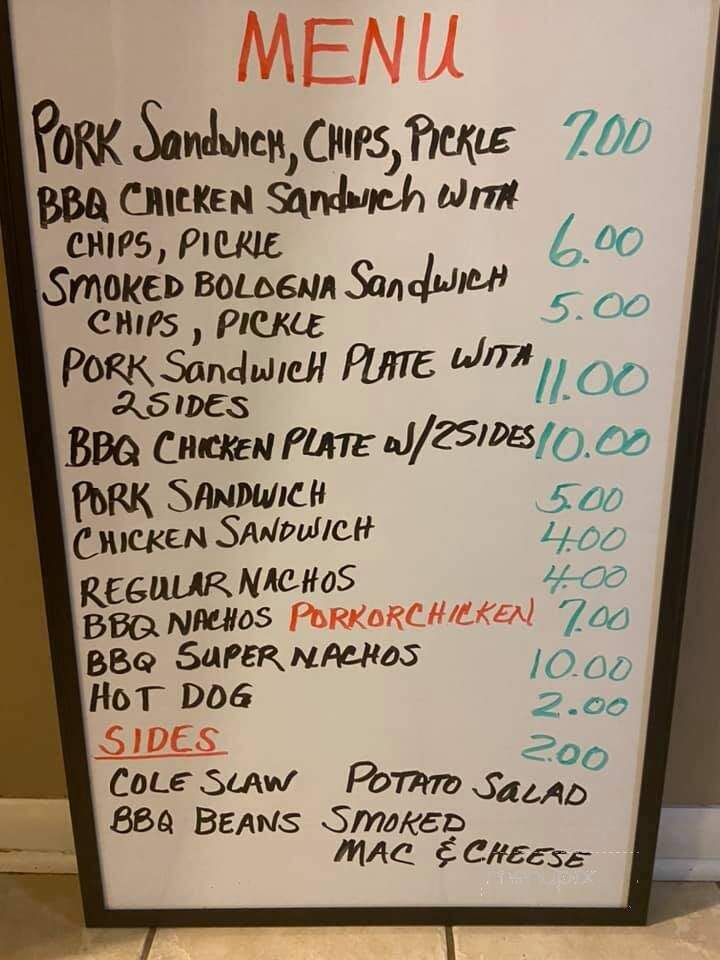 MENU
PORK Sandwich, CHIPS, PICKLE 7.00
BBQ CHICKEN Sandwich WITH
CHIPS, PICKLE 6.00
SMOKED BOLOGNA Sandwich 5.00
CHIPS, PICKLE
PORK Sandwich PLATE WITH 11.00
2 SIDES
BBQ CHICKEN PLATE W/2SIDES 10.00
PORK SANDWICH 5.00
CHICKEN SANDWICH 4.00
REGULAR NACHOS 4.00
BBQ NACHOS PORK OR CHICKEN 7.00
BBQ SUPER NACHOS 10.00
HOT DOG 2.00
SIDES 2.00
COLE SLAW POTATO SALAD
BBQ BEANS SMOKED
MAC & CHEESE